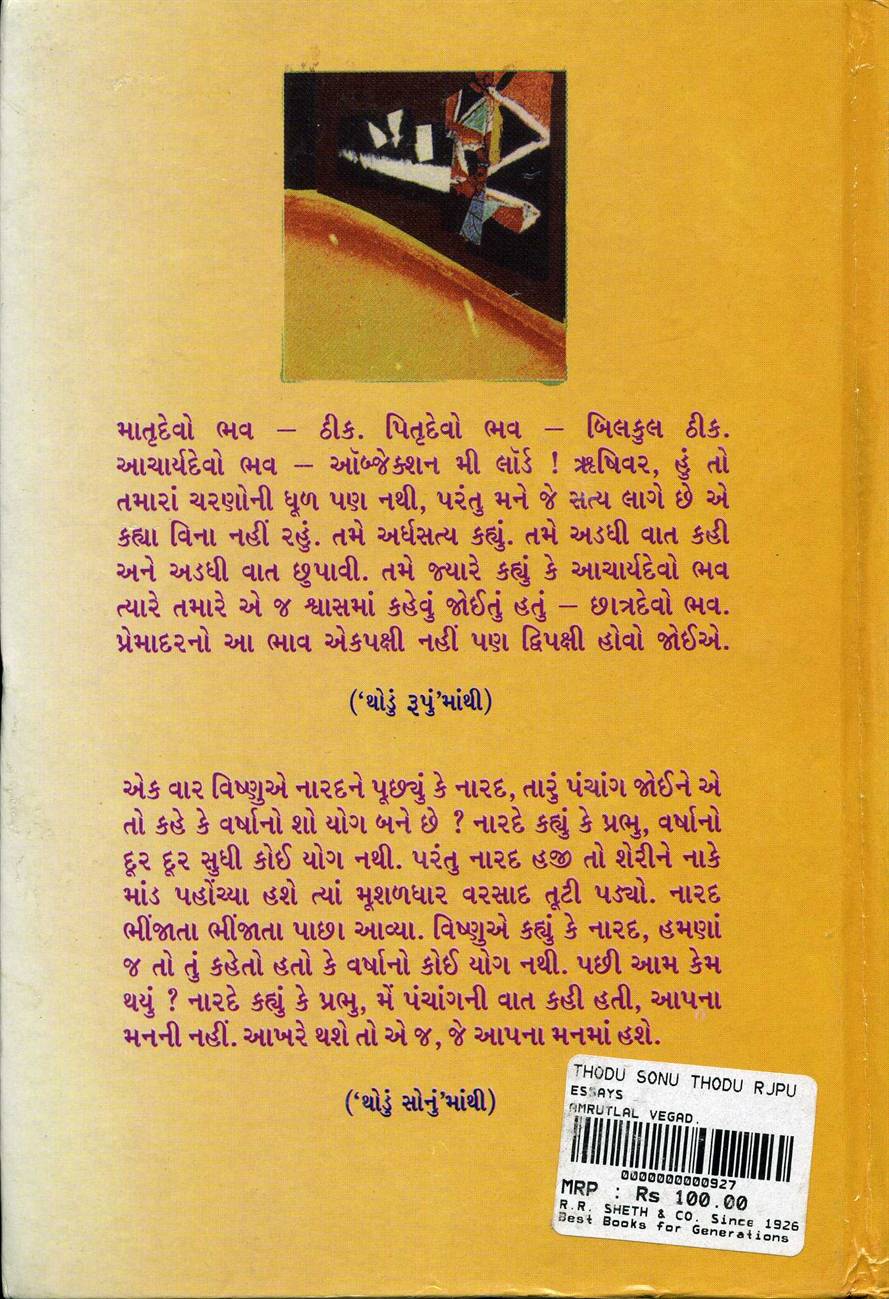 માતૃદેવો ભવ – ઠીક. પિતૃદેવો ભવ – બિલકુલ ઠીક.
આચાર્યદેવો ભવ – ઑબ્જેક્શન મી લૉર્ડ ! ઋષિવર, હું તો
તમારાં ચરણોની ધૂળ પણ નથી, પરંતુ મને જે સત્ય લાગે છે એ
કહ્યા વિના નહીં રહું. તમે અર્ધસત્ય કહ્યું. તમે અડધી વાત કહી
અને અડધી વાત છુપાવી. તમે જ્યારે કહ્યું કે આચાર્યદેવો ભવ
ત્યારે તમારે એ જ શ્વાસમાં કહેવું જોઈતું હતું – છાત્રદેવો ભવ.
પ્રેમાદરનો આ ભાવ એકપક્ષી નહીં પણ દ્વિપક્ષી હોવો જોઈએ.
(‘થોડું રૂપું’માંથી)
એક વાર વિષ્ણુએ નારદને પૂછ્યું કે નારદ, તારું પંચાંગ જોઈને એ
તો કહે કે વર્ષાનો શો યોગ બને છે ? નારદે કહ્યું કે પ્રભુ, વર્ષાનો
દૂર દૂર સુધી કોઈ યોગ નથી. પરંતુ નારદ હજી તો શેરીને નાકે
માંડ પહોંચ્યા હશે ત્યાં મૂશળધાર વરસાદ તૂટી પડ્યો. નારદ
ભીંજાતા ભીંજાતા પાછા આવ્યા. વિષ્ણુએ કહ્યું કે નારદ, હમણાં
જ તો તું કહેતો હતો કે વર્ષાનો કોઈ યોગ નથી. પછી આમ કેમ
થયું ? નારદે કહ્યું કે પ્રભુ, મેં પંચાંગની વાત કહી હતી, આપના
મનની નહીં. આખરે થશે તો એ જ, જે આપના મનમાં હશે.
(‘થોડું સોનું’માંથી)
THODU SONU THODU RJPU
ESSAYS
AMRUTLAL VEGAD.
0000000000927
MRP : Rs 100.00
R.R. SHETH & CO. Since 1926
Best Books for Generations